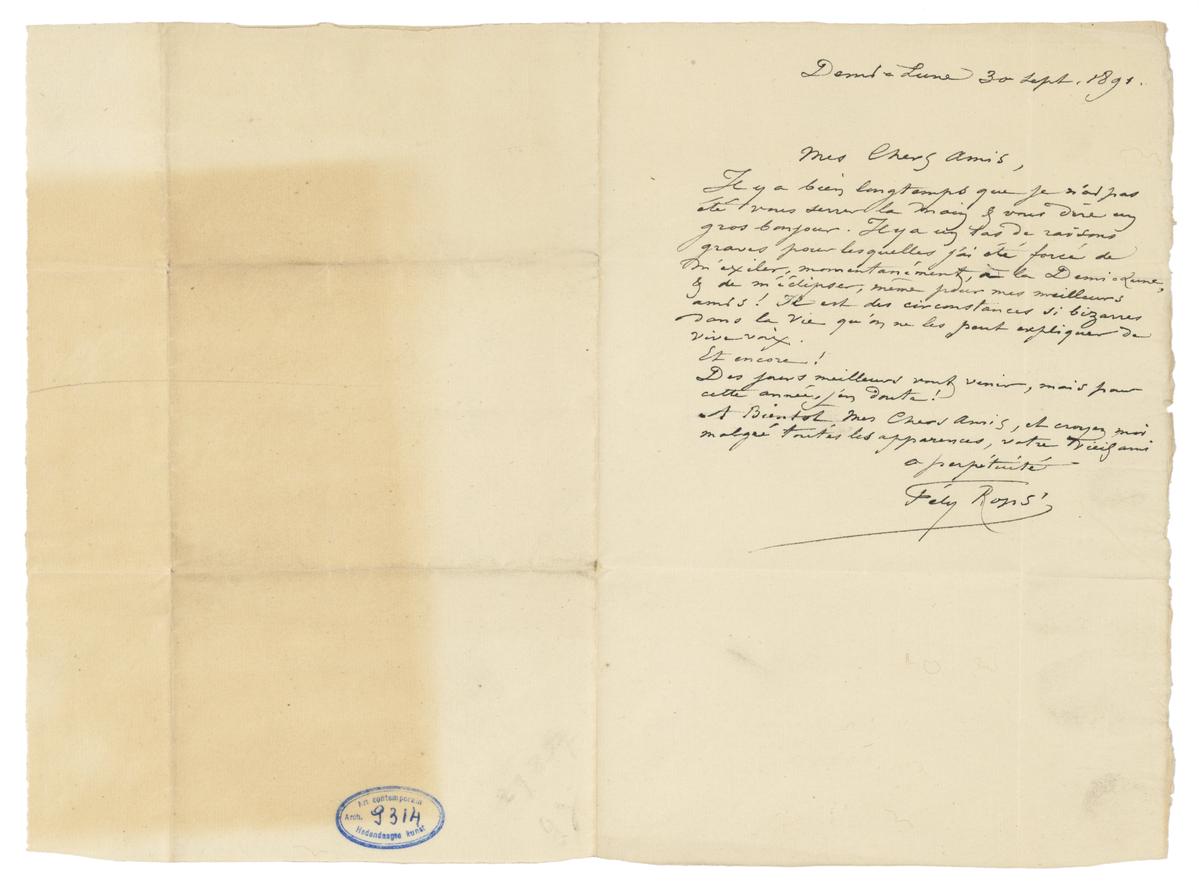 Demi-Lune 30 Sept. 1891.
Mes Chers Amis,
Il y a bien longtemps que je n'ai pas
été vous serrer la main & vous dire un
gros bonjour. Il y a un tas de raisons
graves pour lesquelles j'ai été forcé de
m'exiler, momentanément, à la Demi-Lune,
& de m'éclipser, même pour mes meilleurs
amis! Il est des circonstances si bizarres
dans la vie qu'on ne les peut expliquer de
vive voix.
Et encore!
Des jours meilleurs vont venir, mais pour
cette année, j'en doute!
A Bientot Mes Chers Amis, et croyez moi
malgré toutes les apparences, votre vieil ami
a perpétuité
Fély Rops
Art contemporain
Arch. 9314
Hedendaagse kunst